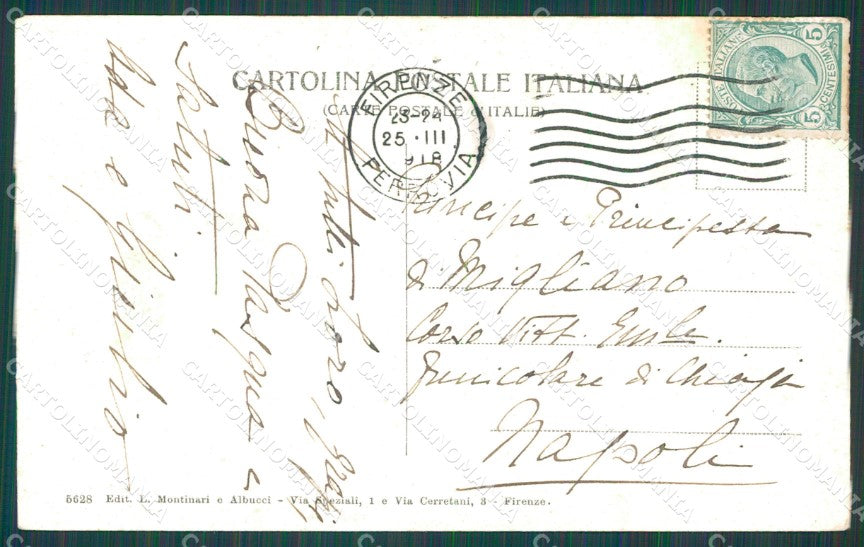 CARTOLINA POSTALE ITALIANA
(CARTE POSTALE D'ITALIE)
FIRENZE
23-24
25 · III
918
FERROVIA
POSTE ITALIANE
5 CENTESIMI 5
Principe e Principessa
di Migliano
Corso Vitt. Emle.
Funicolare di Chiaja
Napoli
a tutti loro,
Buona Pasqua e
Saluti
e Giulio
5628 Edit. L. Montinari e Albucci - Via Speziali, 1 e Via Cerretani, 3 - Firenze.
CARTOLINOMANIA